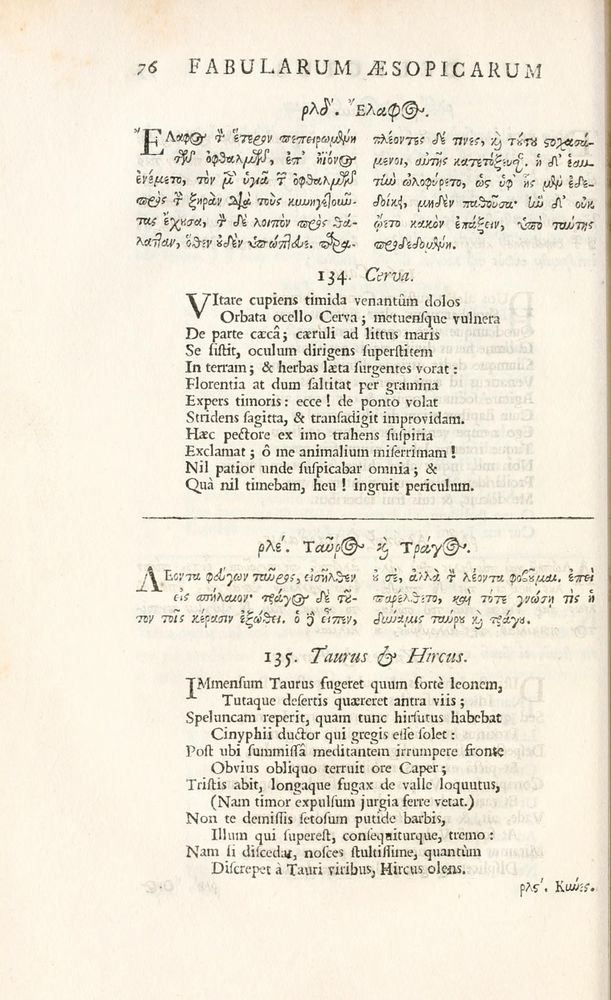 76 FABULARUM ÆSOPICARUM
ρλδʹ. Ἔλαφος.
ἜΛαφος τὸν ἕτερον πεπηρωμένη
τῶν ὀφθαλμῶν, ἐπʼ ἠϊόνος
ἐνέμετο, τὸν μὲν ὑγιᾶ τῶν ὀφθαλμῶν
πρὸς τὴν ξηρὰν διὰ τοὺς κυνηγετοῦν-
τας ἔχουσα, τὸν δὲ λοιπὸν πρὸς θά-
λατταν, ὅθεν οὐδὲν ὑπώπτευε. παρα-
πλέοντες δέ τινες, καὶ τοῦτο στοχασά-
μενοι, αὐτῆς κατετόξευσαν. ἡ δʼ ἑαυ-
τὴν ὠλοφύρετο, ὡς ὑφʼ ἧς μὲν ἐδε-
δοίκει, μηδὲν παθοῦσα· ἣν δʼ οὐκ
ᾤετο κακὸν ἐπάξειν, ὑπὸ ταύτης
προδεδομένη.
134. Cerva.
VItare cupiens timida venantûm dolos
Orbata ocello Cerva; metuensque vulnera
De parte cæcâ; cæruli ad littus maris
Se ſiſtit, oculum dirigens ſuperſtitem
In terram; & herbas læta ſurgentes vorat:
Florentia at dum ſaltitat per gramina
Expers timoris: ecce! de ponto volat
Stridens ſagitta, & tranſadigit improvidam.
Hæc pectore ex imo trahens ſuſpiria
Exclamat; ô me animalium miſerrimam!
Nil patior unde ſuſpicabar omnia; &
Quà nil timebam, heu! ingruit periculum.
ρλεʹ. Ταῦρος καὶ Τράγος.
ΛΕοντα φεύγων ταῦρος, εἰσῆλθεν
εἰς σπήλαιον· τράγος δὲ τοῦ-
τον τοῖς κέρασιν ἐξώθει. ὁ δὲ εἶπεν,
οὐ σὲ, ἀλλὰ τὸν λέοντα φοβοῦμαι. ἐπεὶ
παρελθέτω, καὶ τότε γνώσῃ τίς ἡ
δύναμις ταύρου καὶ τράγου.
135. Taurus & Hircus.
IMmenſum Taurus fugeret quum fortè leonem,
Tutaque deſertis quæreret antra viis;
Speluncam reperit, quam tunc hirſutus habebat
Cinyphii ductor qui gregis eſſe ſolet:
Poſt ubi ſummiſſâ meditantem irrumpere fronte
Obvius obliquo terruit ore Caper;
Triſtis abit, longaque fugax de valle loquutus,
(Nam timor expulſum jurgia ferre vetat.)
Non te demiſſis ſetoſum putide barbis,
Illum qui ſupereſt, conſequiturque, tremo:
Nam ſi diſcedat, noſces ſtultiſſime, quantùm
Diſcrepet à Tauri viribus, Hircus olens.
ρλςʹ. Κύνες.